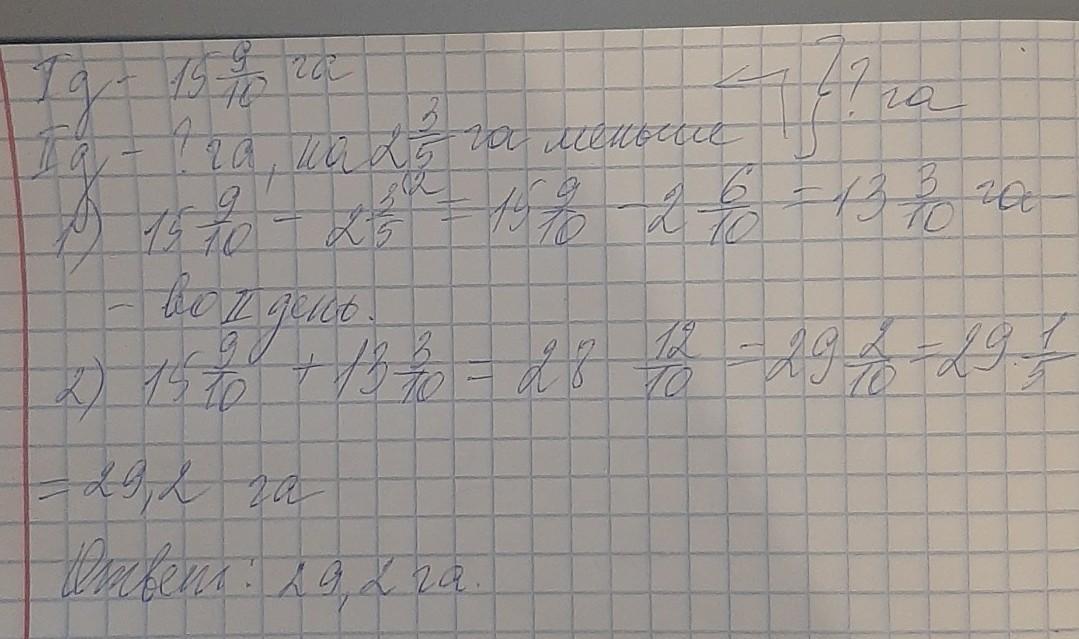 I д - 15 9/10 га
II д - ? га, на 2 3/5 га меньше } ? га
1) 15 9/10 - 2 3/5 (2 = 15 9/10 - 2 6/10 = 13 3/10 га -
- во II день.
2) 15 9/10 + 13 3/10 = 28 12/10 = 29 2/10 = 29 1/5
= 29,2 га
Ответ: 29,2 га.